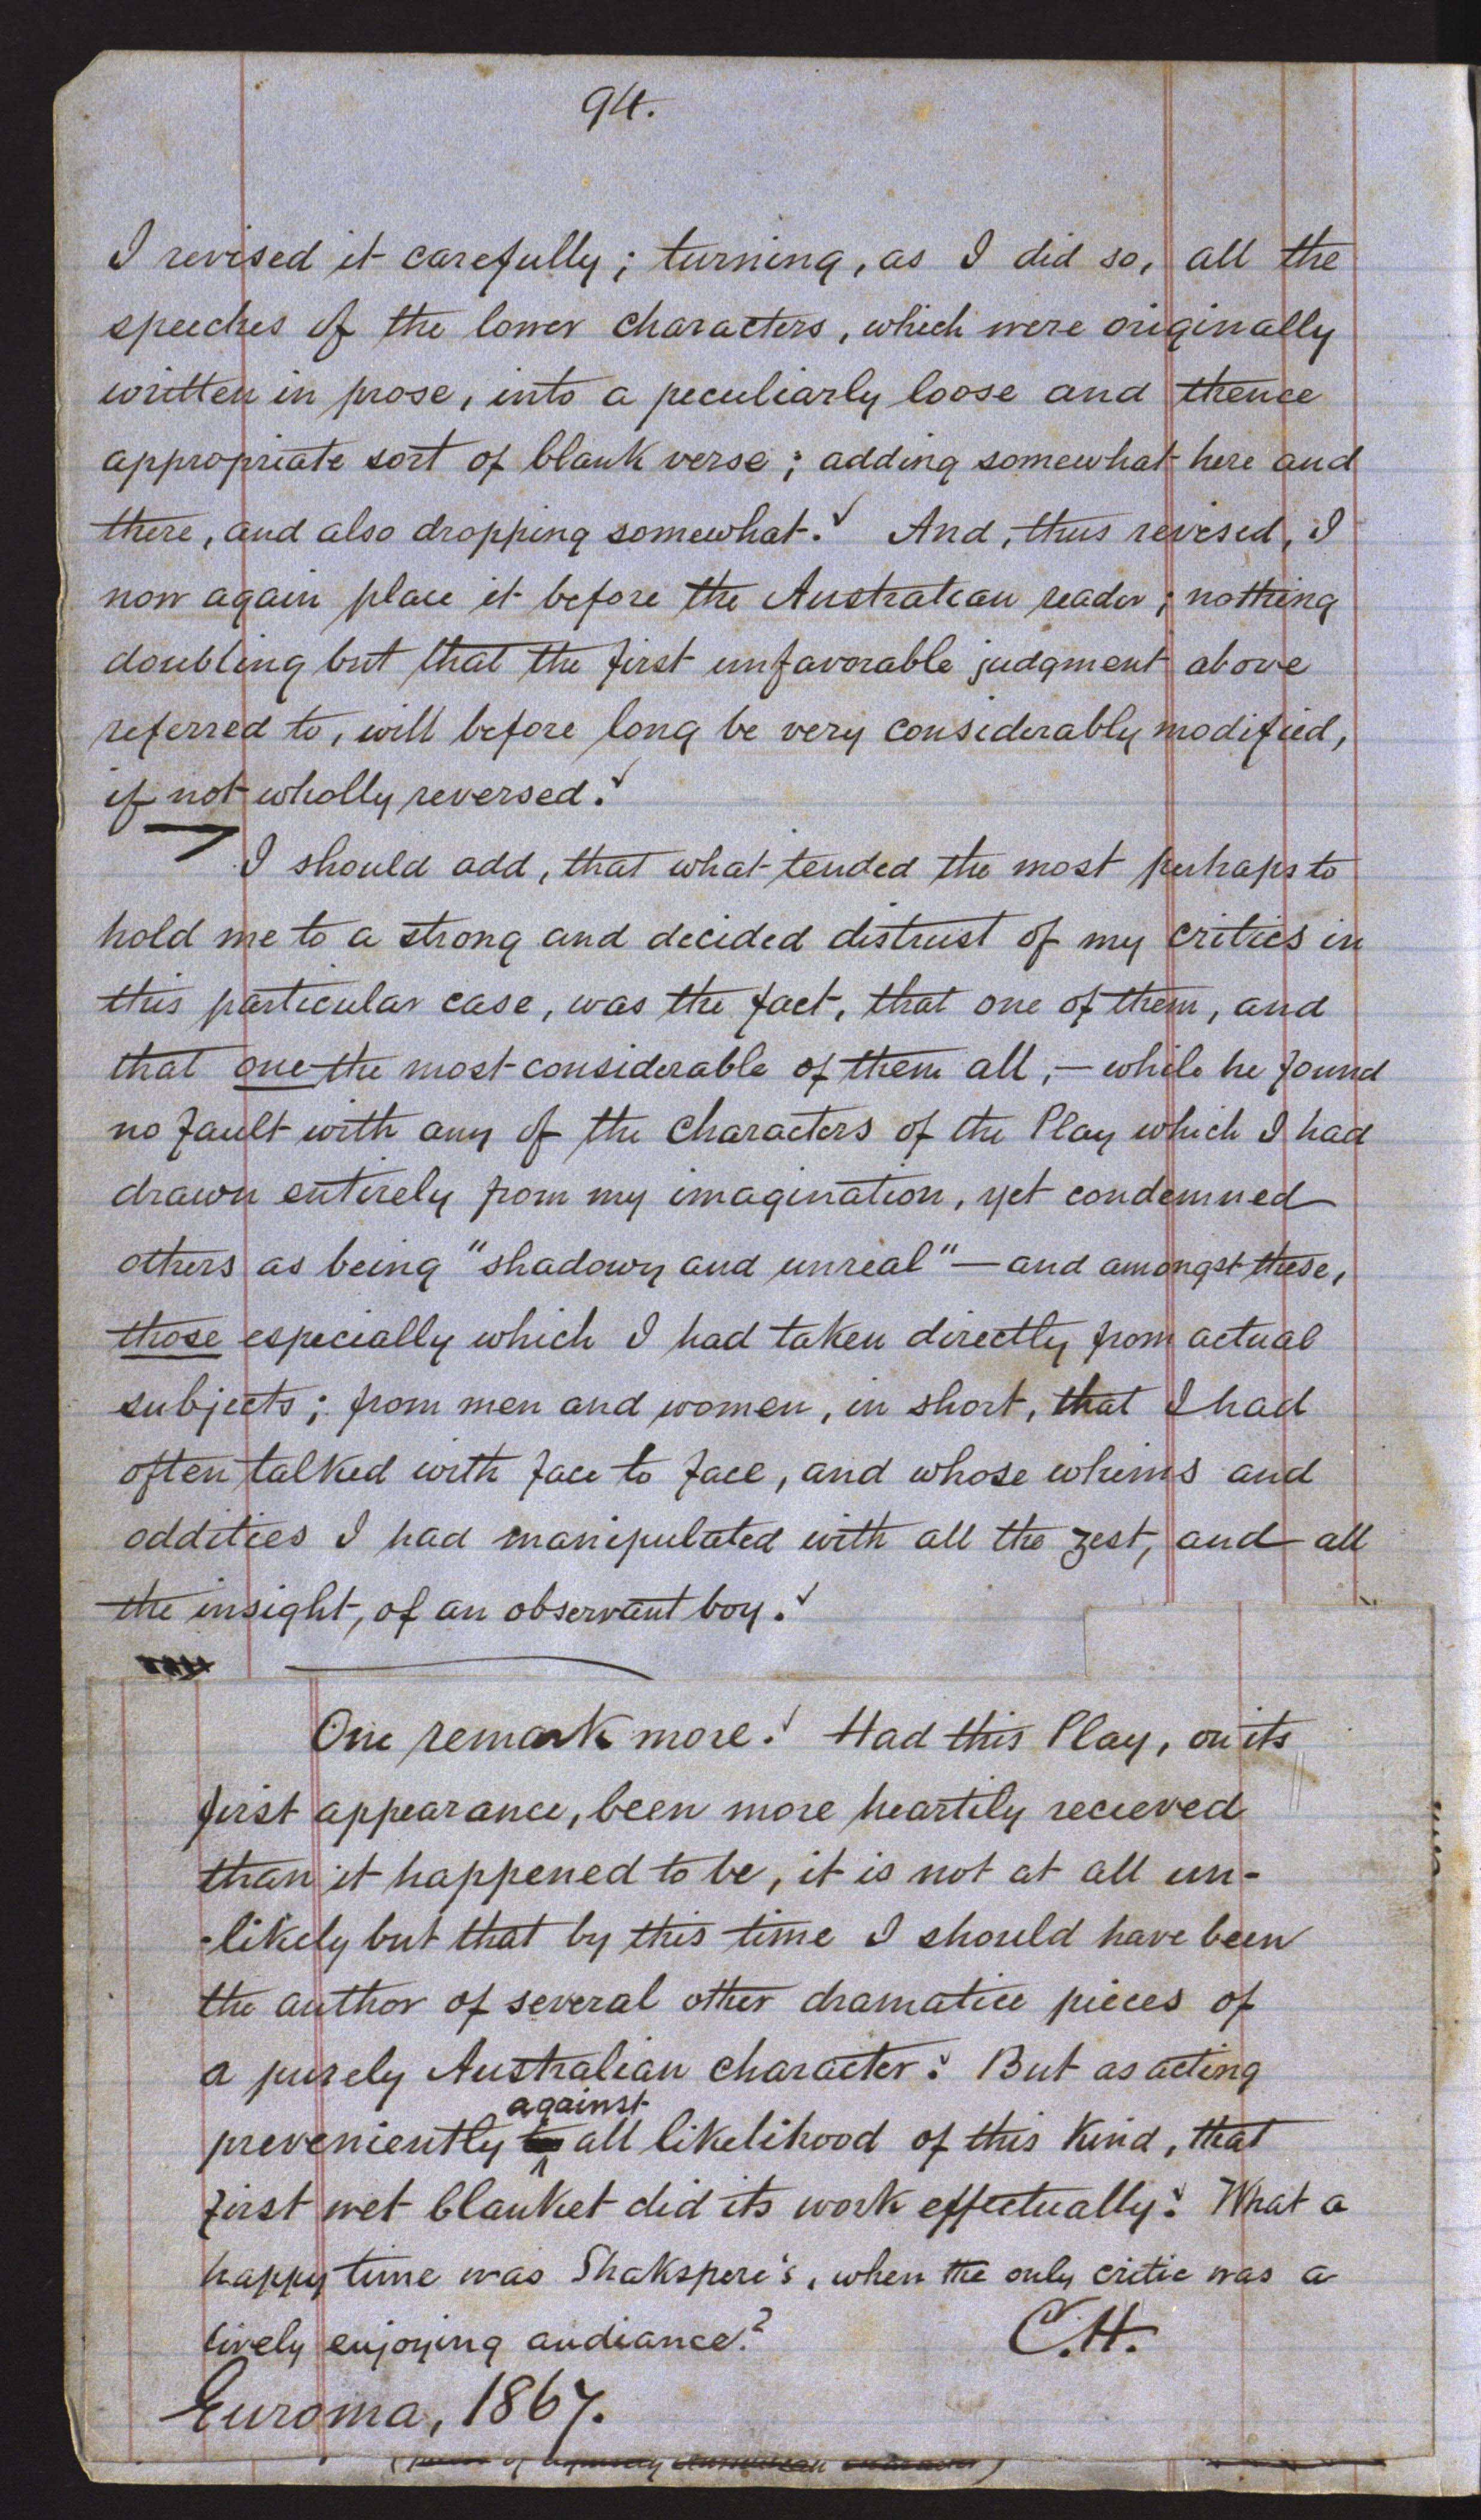 94.
I revised it carefully; turning, as I did so, all the
speeches of the lower characters, which were originally
written in prose, into a peculiarly loose and thence
appropriate sort of blank verse; adding somewhat here and
there, and also dropping somewhat. And, thus revised, I
now again place it before the Australian reader; nothing
doubting but that the first unfavorable judgment above
referred to, will before long be very considerably modified,
if not wholly reversed.
I should add, that what tended the most perhaps to
hold me to a strong and decided distrust of my critics in
this particular case, was the fact, that one of them, and
that one the most considerable of them all,—while he found
no fault with any of the characters of the Play which I had
drawn entirely from my imagination, yet condemned
others as being "shadowy and unreal"—and amongst these,
those especially which I had taken directly from actual
subjects; from men and women, in short, that I had
often talked with face to face, and whose whims and
oddities I had manipulated with all the zest, and all
the insight, of an observant boy.
One remark more. Had this Play, on its
first appearance, been more heartily recieved
than it happened to be, it is not at all un-
-likely but that by this time I should have been
the author of several other dramatic pieces of
a purely Australian character. But as acting
against
preveniently all likelihood of this kind, that
first wet blanket did its work effectually. What a
happy time was Shakspere's, when the only critic was a
lively enjoying audiance?
C.H.
Euroma, 1867.